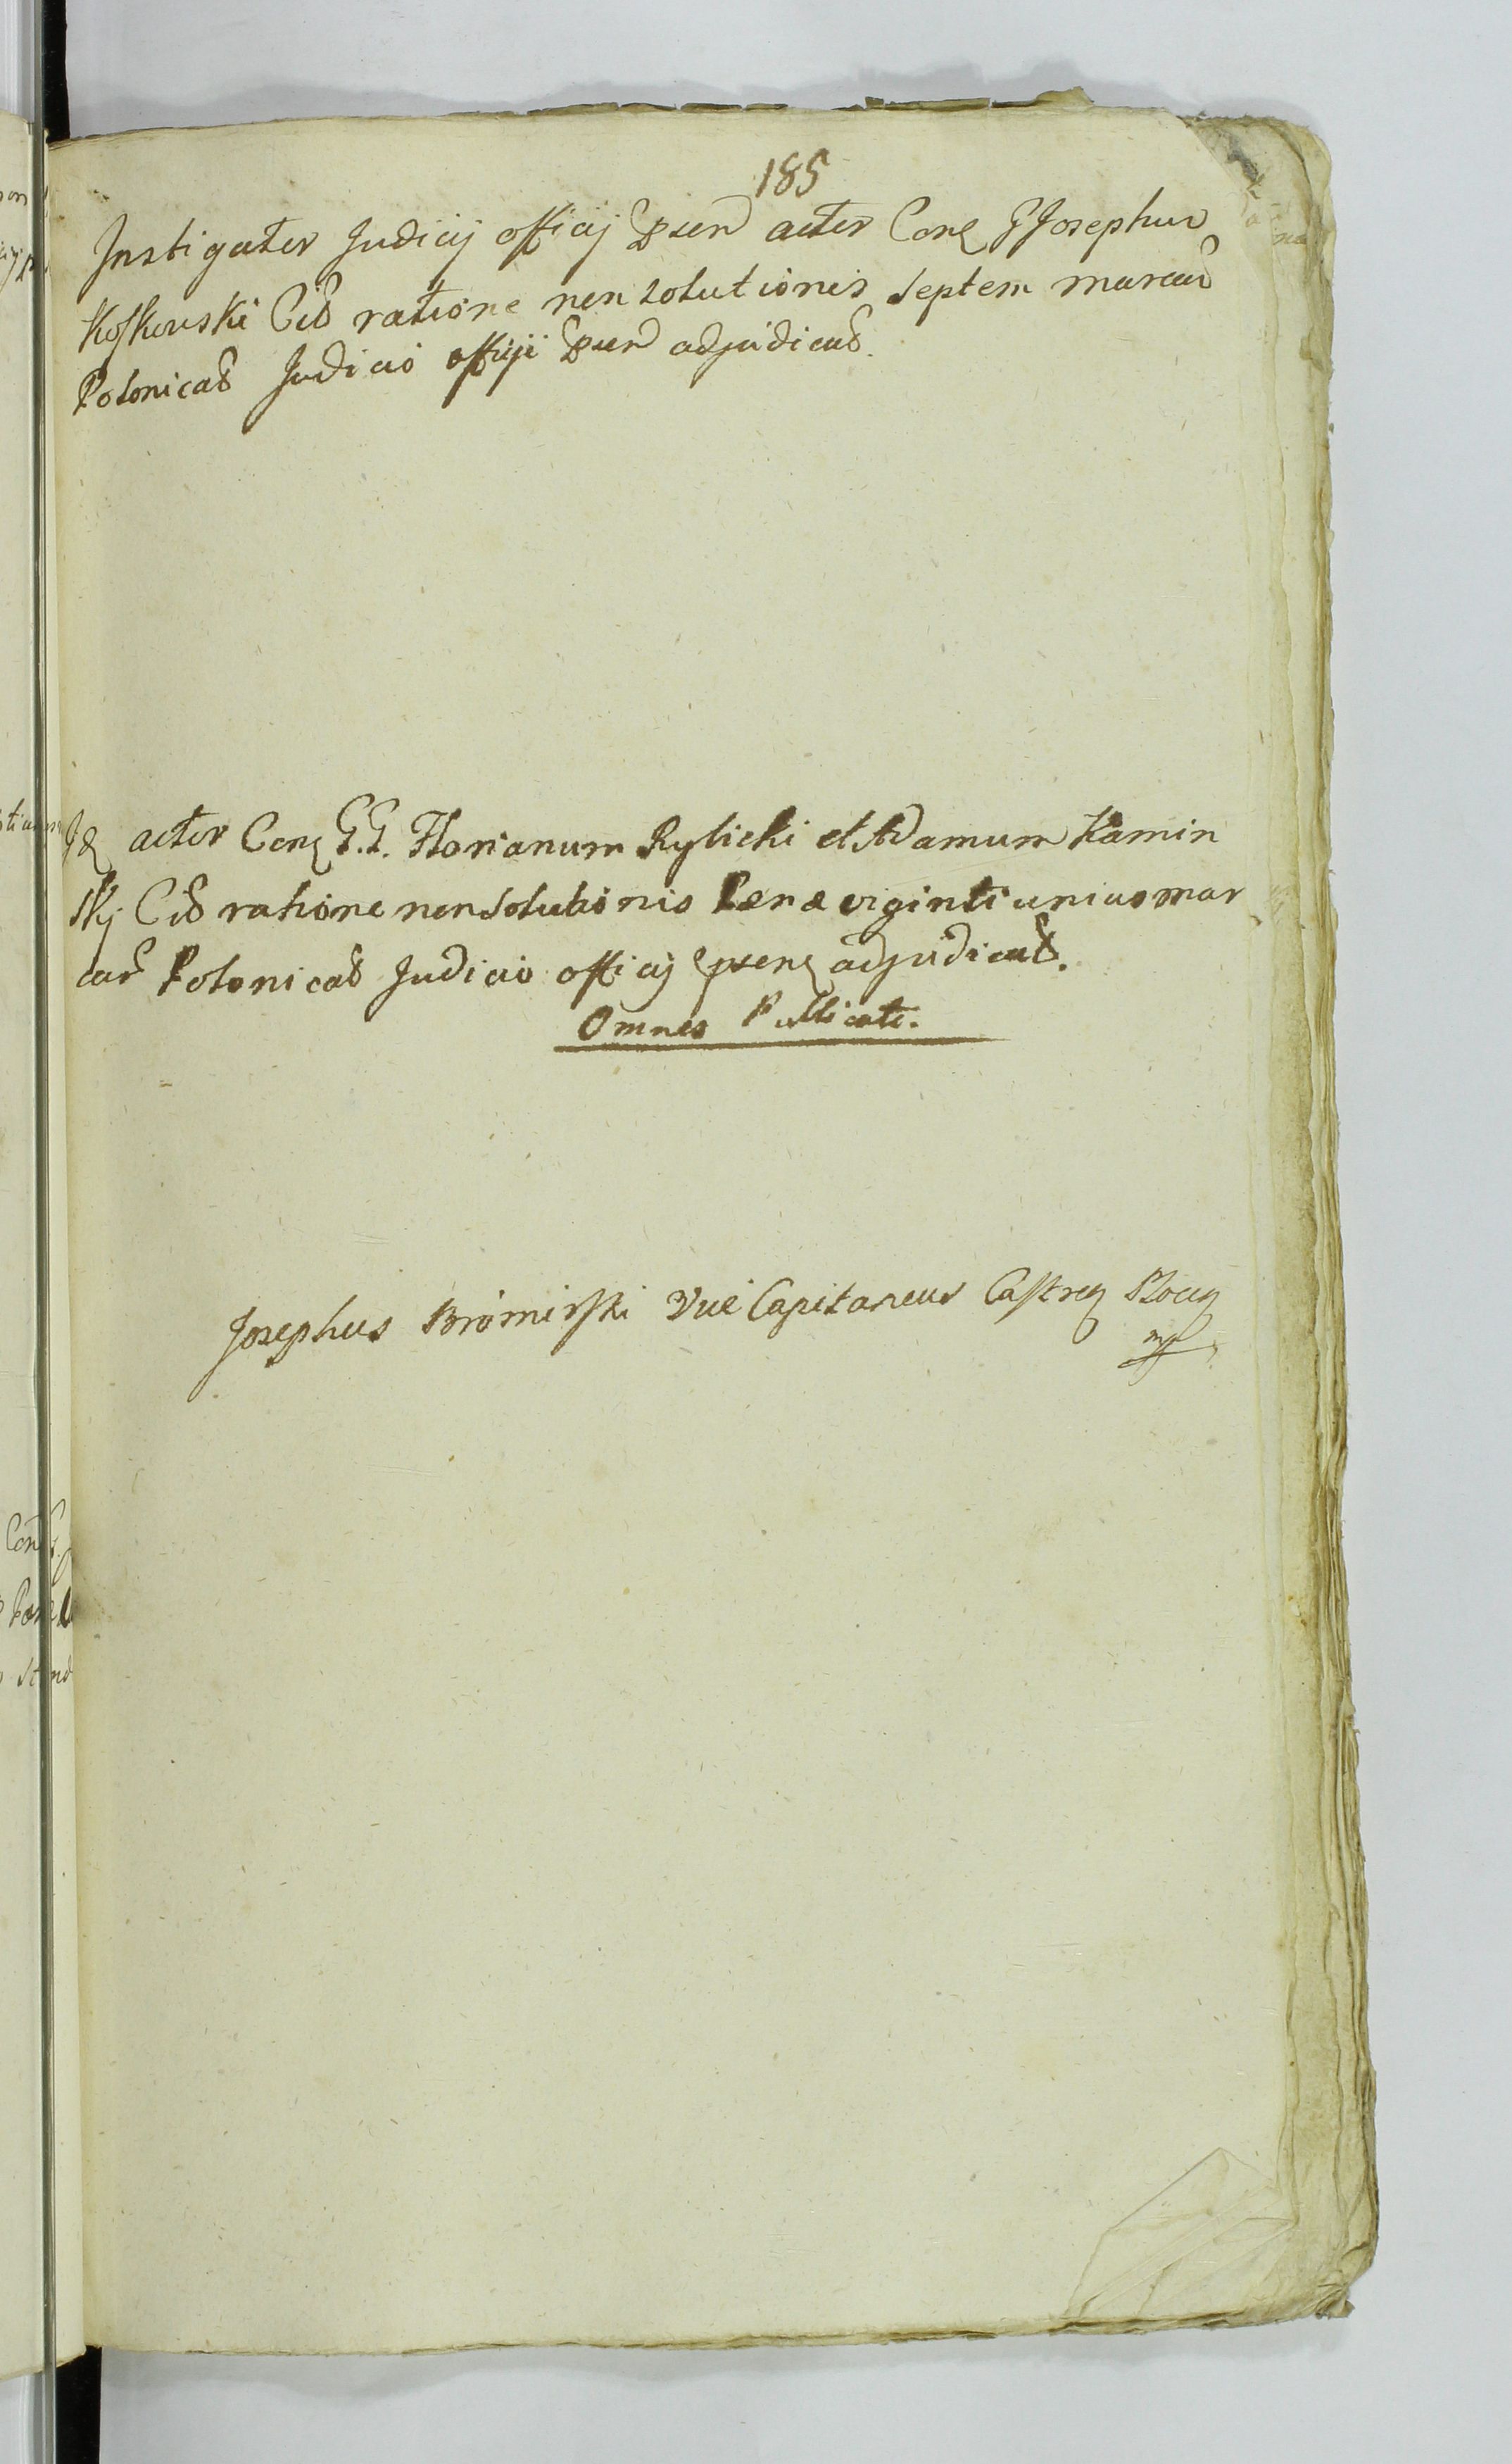 185
Instigator Judicij officij Psen actor Con G Josephum
Koskowski Cit ratione non solutionis septem marcar
Polonical Judicio officij Psen adjudicat.
Id actor Con G.G. Florianum Rylicki et Adamum Kamin
skj Cit ratione non solutionis Pænæ viginti unius mar
car Polonical Judicio officij psen adjudicat.
Omnes Publicati.
Josephus Bromirski Vice Capitaneus Castren Plocen
mp